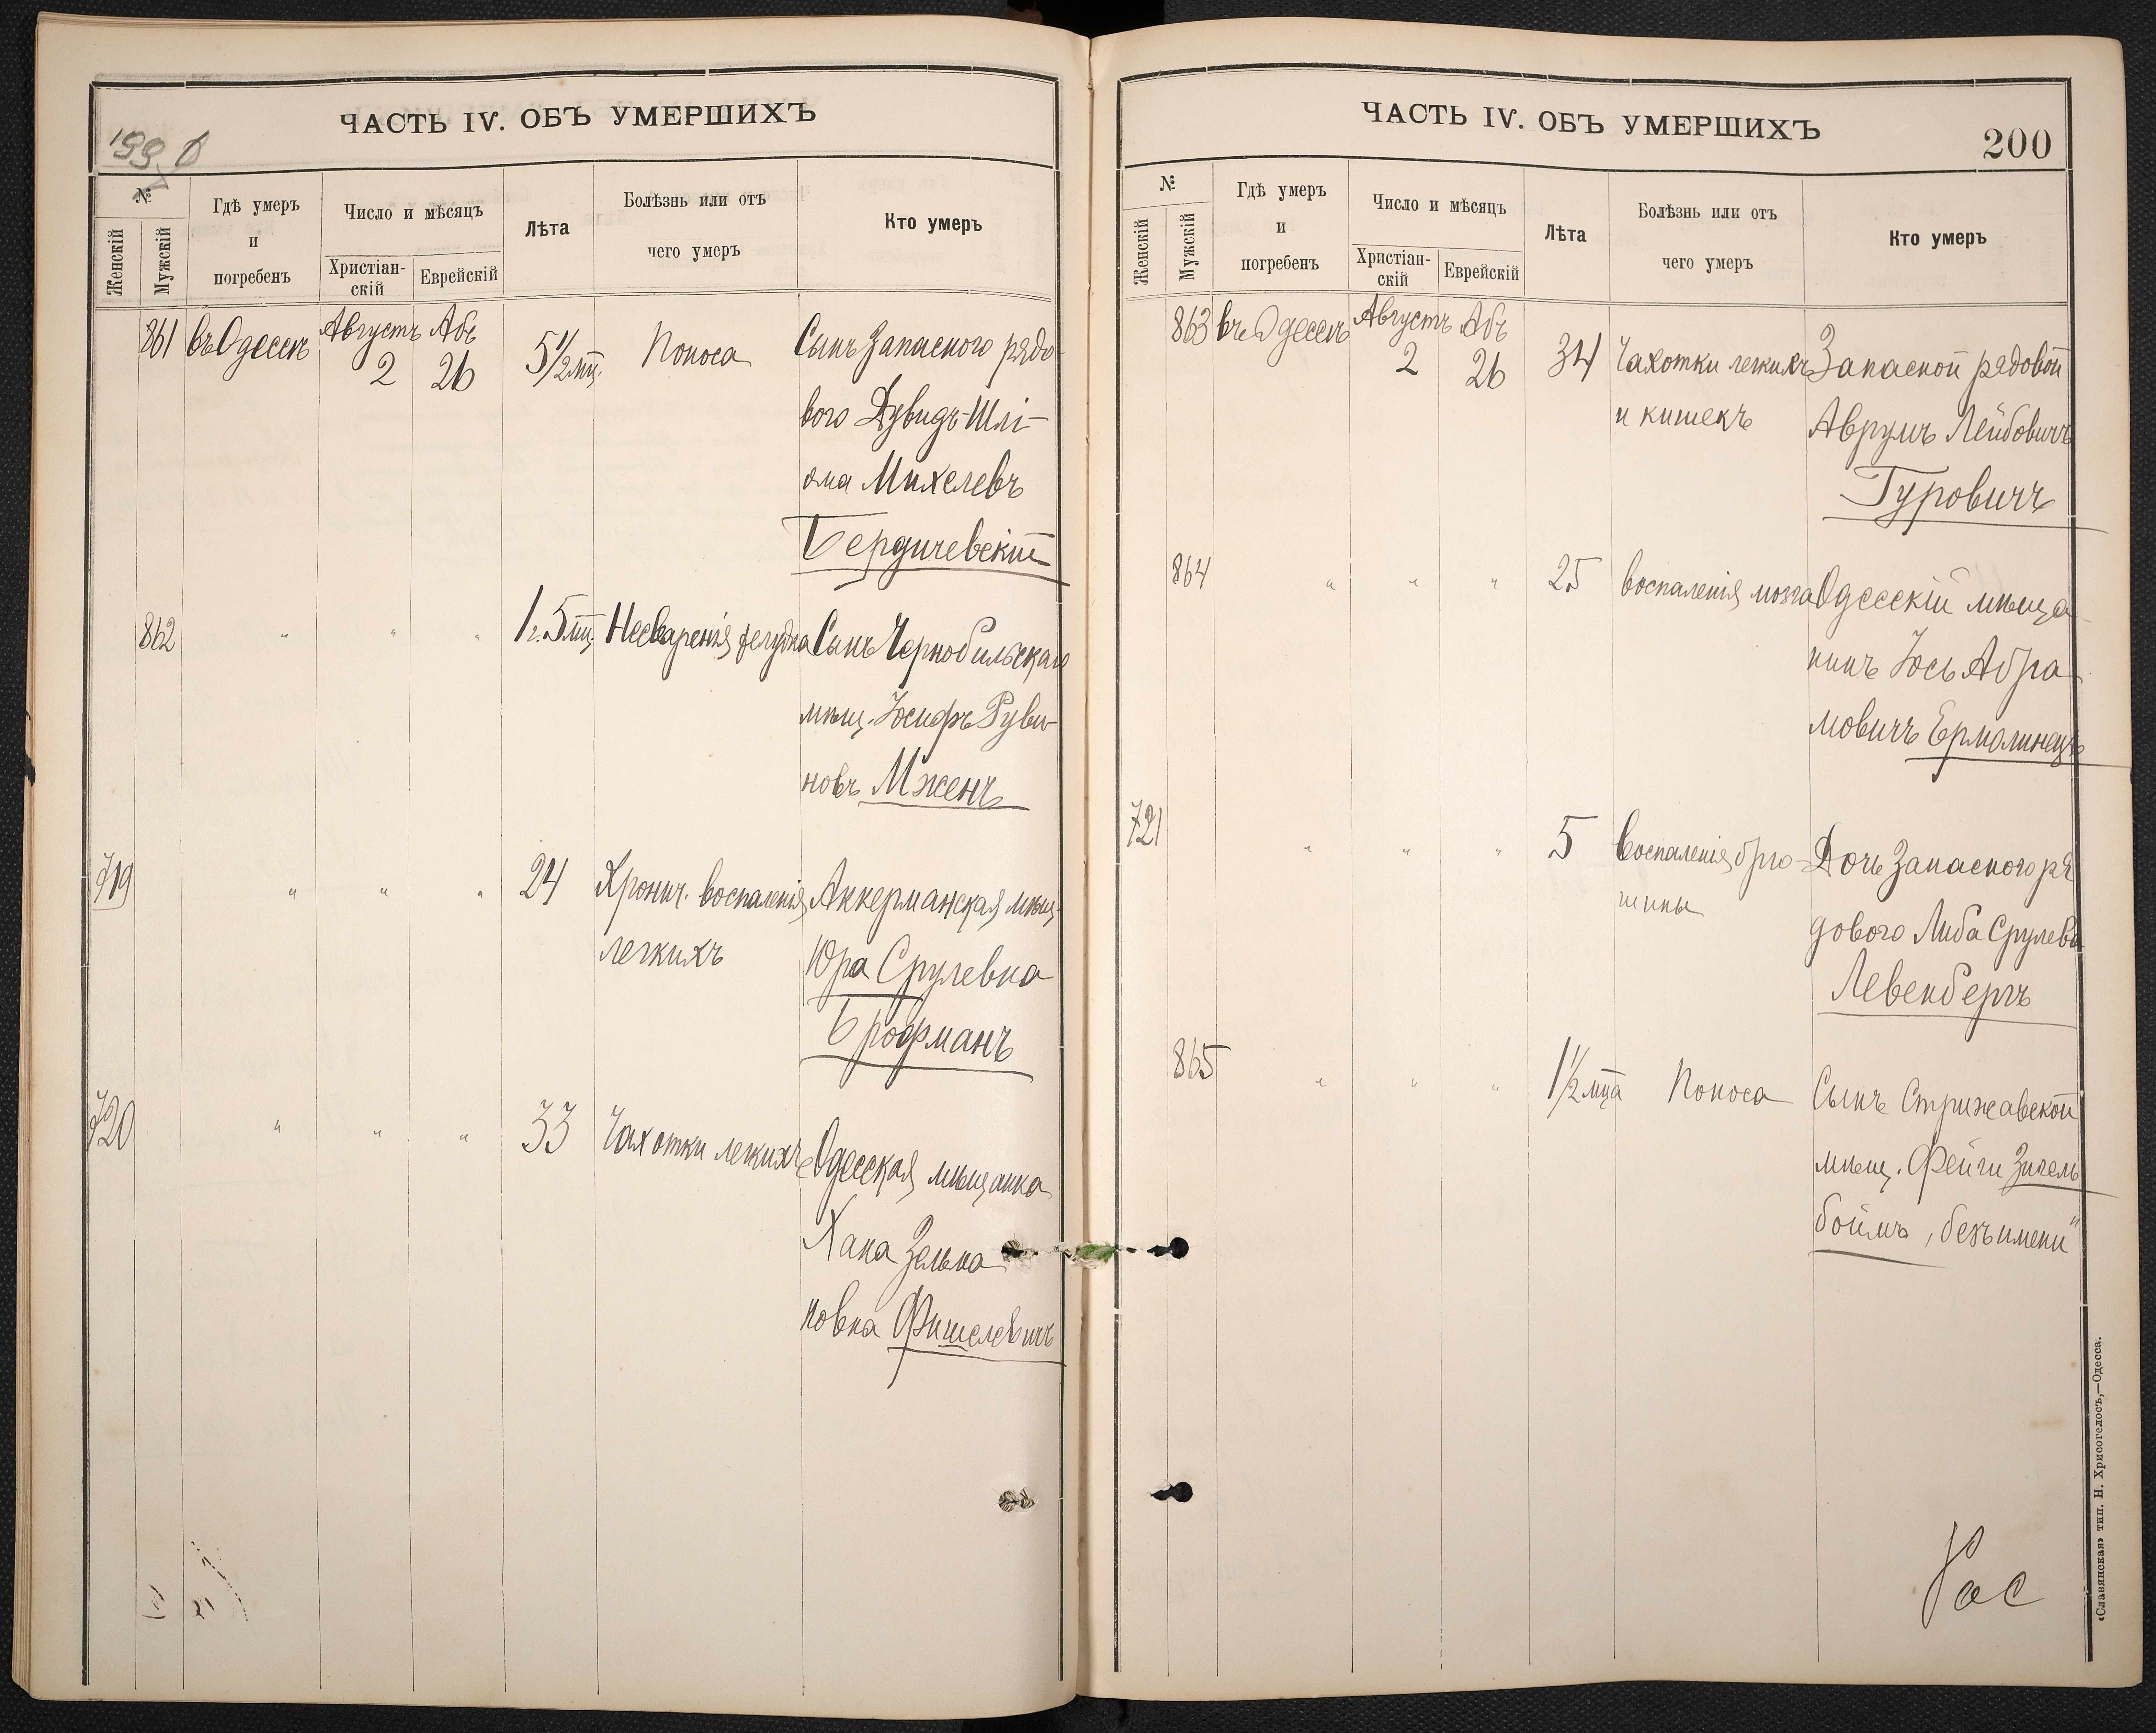 ЧАСТЬ IV. ОБЪ УМЕРШИХЪ
№
Женскій
Мужскій
Гдѣ умеръ
и
погребенъ
Число и мѣсяцъ
Христіан-
скій
Еврейскій
Лѣта
Болѣзнь или отъ
чего умеръ
Кто умеръ
861 въ Одессѣ Августъ 2 Абъ 26 5 1/2 мц. Поноса Сынъ Запасного рядо-
вого Дувидъ-Шлі-
ома Михелевъ
Бердичевскій
862 " " " 1 г. 5 мц. Несваренія желудка Сынъ Чернобильскаго
мѣщ. Іосифъ Руви-
новъ Мженъ
719 " " " 24 Хронич. воспаленія Аккерманская мѣщ.
легкихъ Юра Срулевна
Брофманъ
720 " " " 33 Чахотки легкихъ Одесская мѣщанка
Хана Зельма
новна Фишелевичъ
ЧАСТЬ IV. ОБЪ УМЕРШИХЪ
200
№
Женскій
Мужскій
Гдѣ умеръ
и
погребенъ
Число и мѣсяцъ
Христіан-
скій
Еврейскій
Лѣта
Болѣзнь или отъ
чего умеръ
Кто умеръ
863 въ Одессѣ Августъ 2 Абъ 26 34 Чахотки легкихъ Запасной рядовой
и кишекъ Аврумъ Лейбовичъ
Гуровичъ
864 " " " 25 воспаленія мозга Одесскій мѣща
нинъ Іось Абра
мовичъ Ермолинецъ
721 " " " 5 Воспаленія брю- Дочь Запасного ря
шины дового Либа Срулева
Левенбергъ
865 " " " 1 1/2 мца Поноса Сынъ Стрижавской
мѣщ. Фейги Зигель
боймъ, "безъ имени"
«Славянская» тип. Н. Хрисогелосъ,—Одесса.